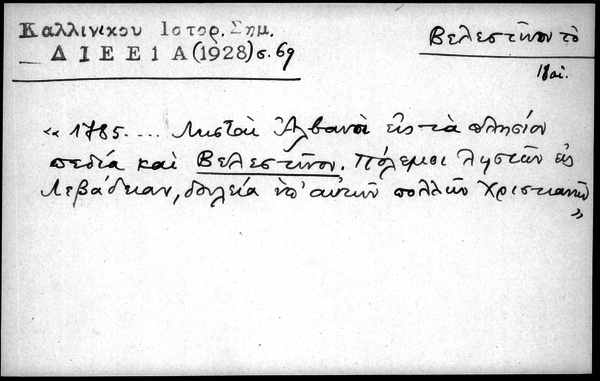 Καλλινίκου Ιστορ. Σημ.
ΔΙΕΕ 1 Α (1928) σ. 69
Βελεστῖνον τὸ
18 αἰ.
«1785.... Λησταὶ Ἀλβανοὶ εἰς τὰ πλησίον
πεδία καὶ Βελεστῖνον. Πόλεμοι λῃστῶν εἰς
Λεβάδειαν, δουλεία ὑπ' αὐτῶν πολλῶν Χριστιανῶν
»